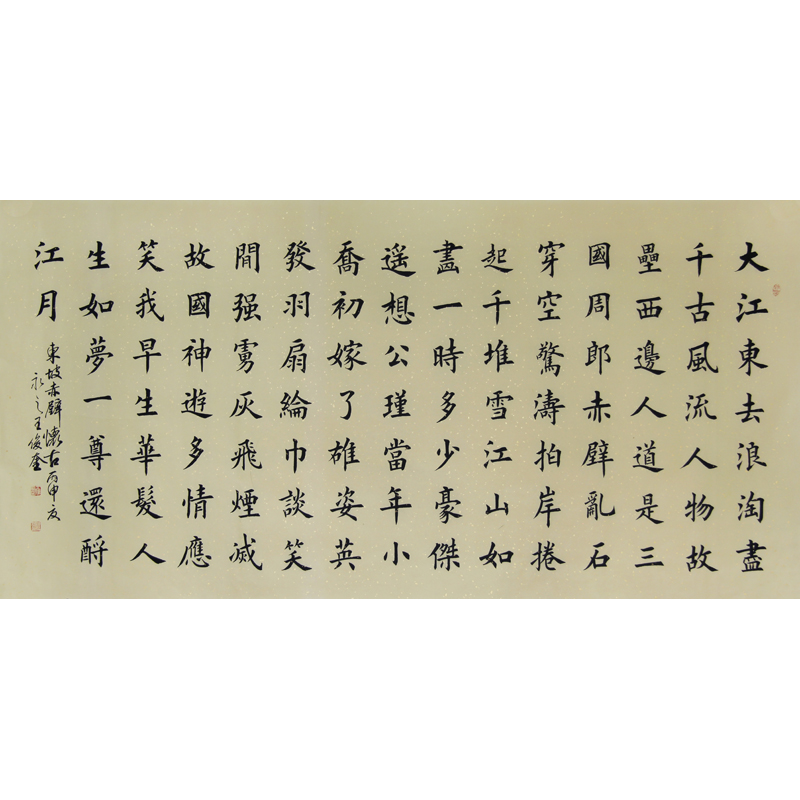 大江東去浪淘盡
千古風流人物故
壘西邊人道是三
國周郎赤壁亂石
穿空驚濤拍岸捲
起千堆雪江山如
畫一時多少豪傑
遥想公瑾當年小
喬初嫁了雄姿英
發羽扇綸巾談笑
間强虜灰飛煙滅
故國神遊多情應
笑我早生華髮人
生如夢一尊還酹
江月
東坡赤壁懷古丙申夏
永之王俊奎